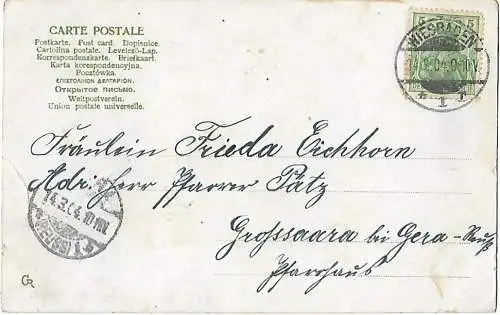 CARTE POSTALE
Postkarte. Post card. Dopisnice.
Cartolina postale. Levelező-Lap.
Korrespondenzkarte. Briefkaart.
Karta korespondencyjna.
Pocztówka.
ΕΠΙΣΤΟΛΙΚΟΝ ΔΕΛΤΑΡΙΟΝ.
Открытое письмо.
Weltpostverein.
Union postale universelle.
WIESBADEN
1
Fräulein Frieda Eichhorn
Adr. Herr Pfarrer Pätz
Grosssaara bei Gera-Reuß
Pfarrhaus
14.2.04.10-11V.
GR